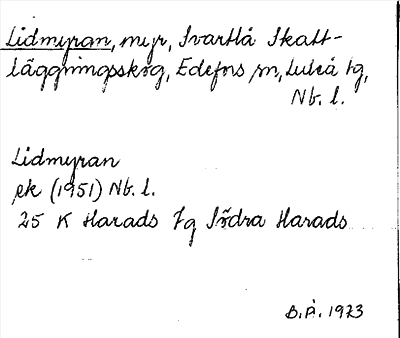 Lidmyran, myr, Svartlå Skatt-
läggningsskog, Edefors sn, Luleå tg,
Nb. l.
Lidmyran
ek (1951) Nb. l.
25 K Harads 7g Södra Harads
B.Å. 1973